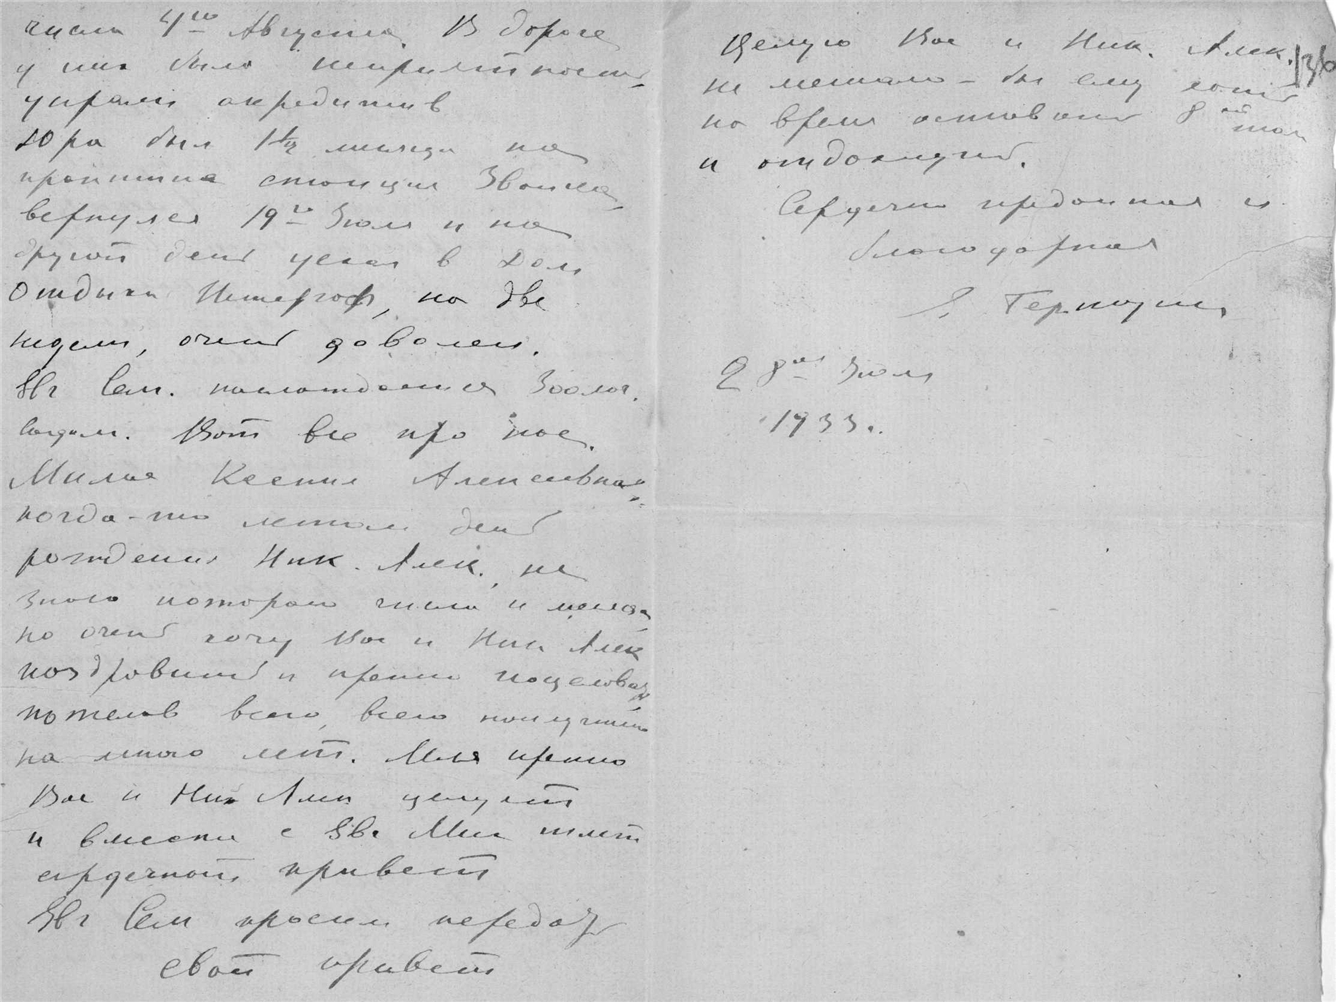 числа 4го Августа. В дороге
у них были неприятности,
украли аккредитив
Юра был 1½ месяца на
практике станции Званка,
вернулся 19го Июля и на
другой день уехал в Дом
Отдыха Петергоф, на две
недели, очень доволен.
Евг Сем. наслаждается Зоолог.
садом. Вот все про нас.
Милая Ксения Алексеевна,
когда-то летом день
рождения Ник. Алек., не
знаю которого числа и месяца
но очень хочу Вас и Ник Алек
поздравить и крепко поцеловать
пожелав всего, всего наилучшего
на много лет. Миля крепко
Вас и Ник Алек целует
и вместе с Евг Мих шлет
сердечный привет
Евг Сем просил передать
свой привет
Целую Вас и Ник. Алек.
не мешало-бы ему хоть
на время оставить
и отдохнуть.
Сердечно преданная и
благодарная
28го Июля
1933.